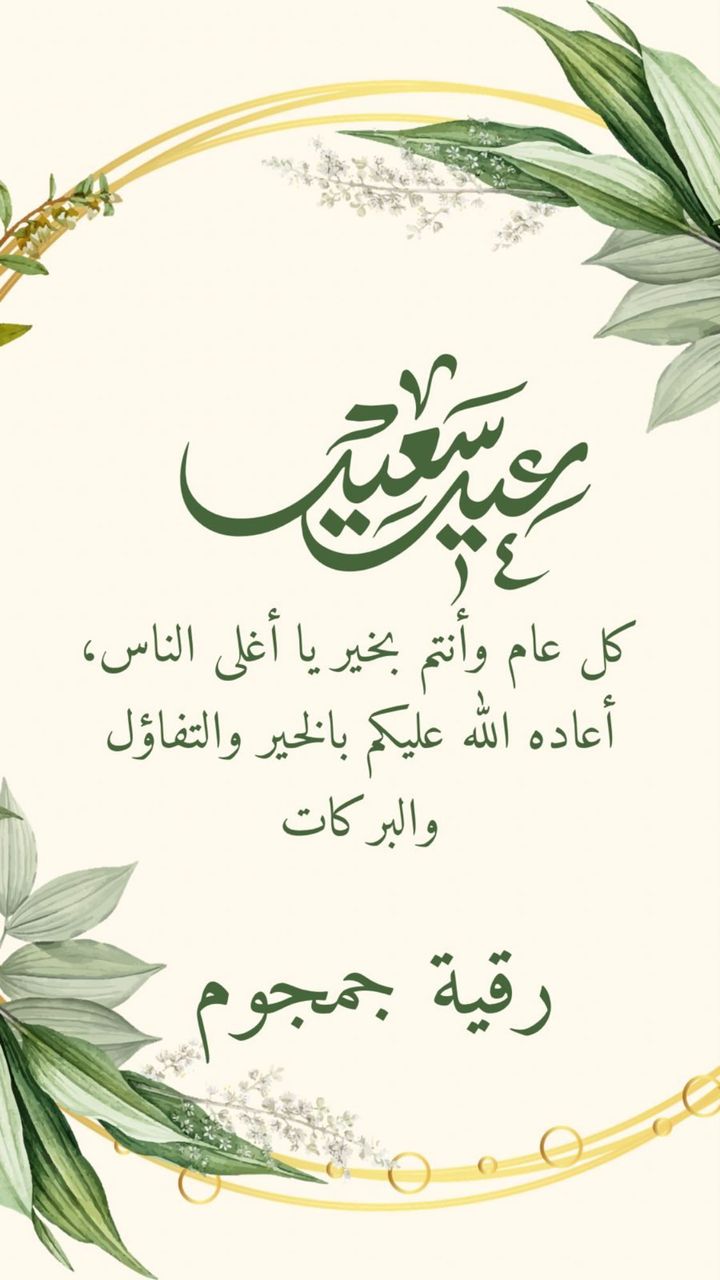 عيد سعيد
كل عام وأنتم بخير يا أغلى الناس،
أعاده الله عليكم بالخير والتفاؤل
والبركات
رقية جمجوم